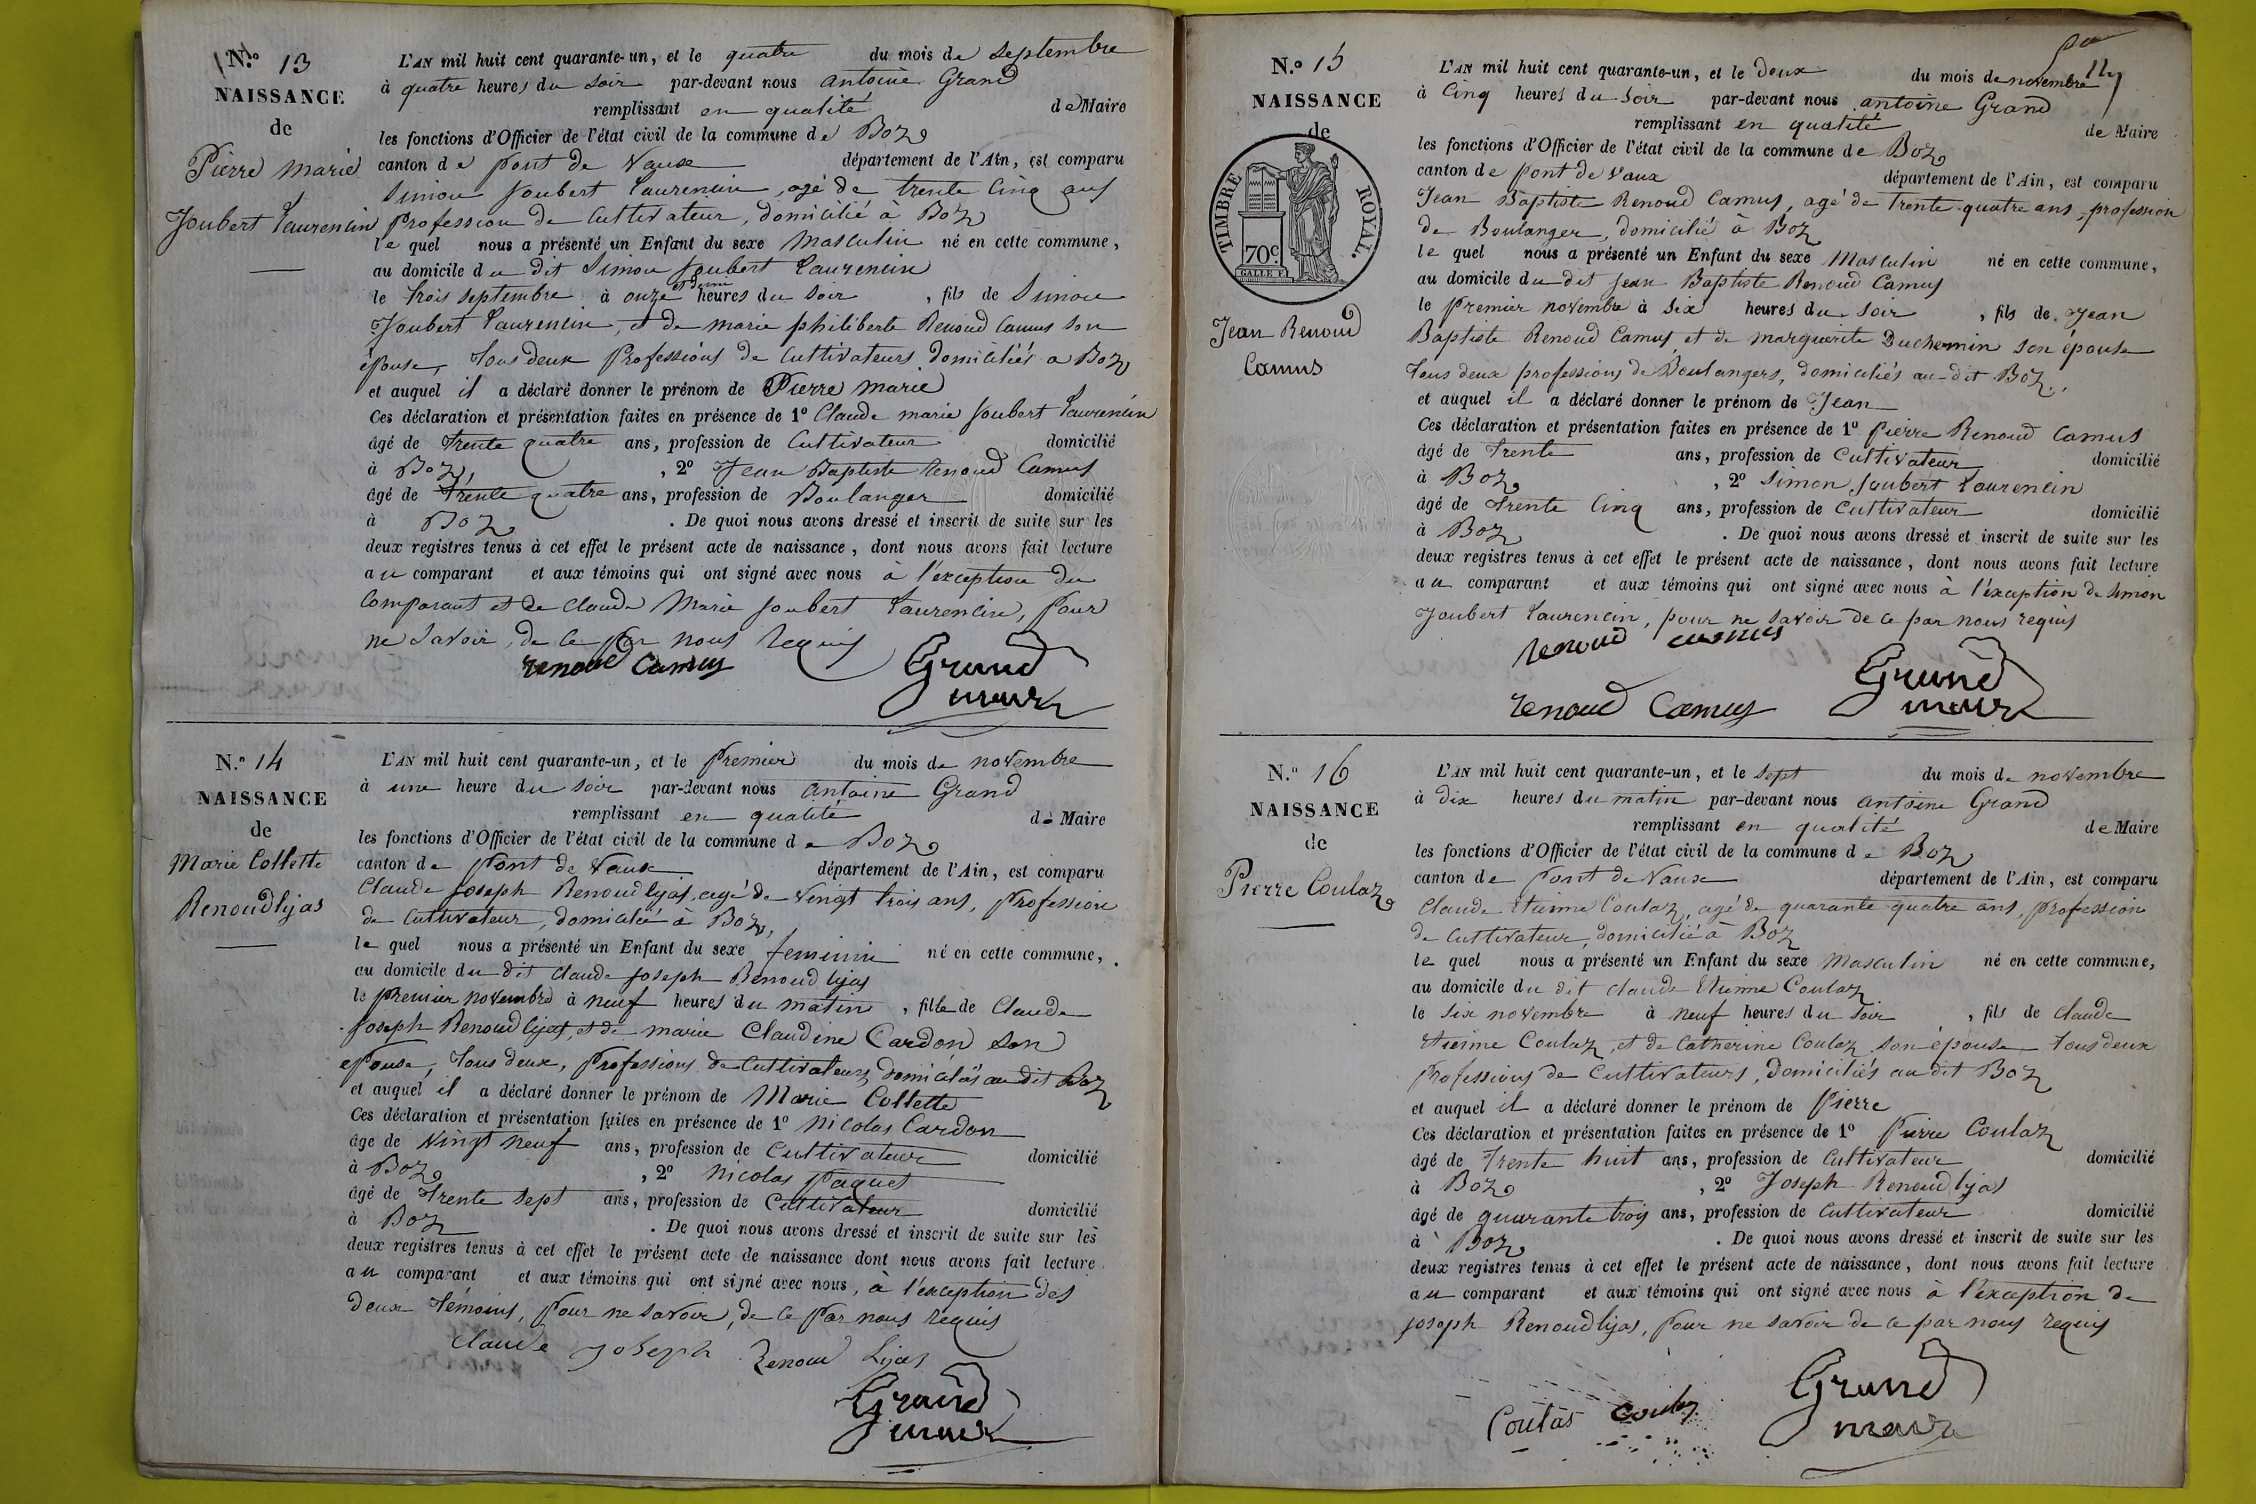 N.º 13
NAISSANCE
de
Pierre Marie
Joubert Laurencin
L'AN mil huit cent quarante-un, et le quatre du mois de septembre
à quatre heures du soir par-devant nous antoine Grand
remplissant en qualité de Maire
les fonctions d'Officier de l'état civil de la commune de Boz
canton de pont de Vaux département de l'Ain, est comparu
Simon Joubert Laurencin, agé de trente cinq ans
profession de Cultivateur, domicilié à Boz
le quel nous a présenté un Enfant du sexe Masculin né en cette commune,
au domicile du dit Simon Joubert Laurencin
le trois septembre à onze et demie heures du soir, fils de Simon
Joubert Laurencin, et de marie philiberte Renoud Camus son
épouse, tous deux Professions de Cultivateurs domiciliés a Boz
et auquel il a déclaré donner le prénom de Pierre Marie
Ces déclaration et présentation faites en présence de 1º Claude marie Joubert Laurencin
âgé de trente quatre ans, profession de Cultivateur domicilié
à Boz, 2º Jean Baptiste Renoud Camus
âgé de trente quatre ans, profession de Boulanger domicilié
à Boz. De quoi nous avons dressé et inscrit de suite sur les
deux registres tenus à cet effet le présent acte de naissance, dont nous avons fait lecture
au comparant et aux témoins qui ont signé avec nous à l'exception du
Comparant et de claude Marie Joubert Laurencin, pour
ne savoir, de ce par nous requis
renoud Camus Grand
maire
N.º 14
NAISSANCE
de
Marie Collette
Renoudlyas
L'AN mil huit cent quarante-un, et le premier du mois de novembre
à une heure du soir par-devant nous antoine Grand
remplissant en qualité de Maire
les fonctions d'Officier de l'état civil de la commune de Boz
canton de Pont de Vaux département de l'Ain, est comparu
Claude Joseph Renoudlyas, agé de Vingt trois ans, Profession
de Cultivateur, domicilié à Boz,
le quel nous a présenté un Enfant du sexe feminin né en cette commune,
au domicile du dit claude joseph Renoud lyas
le premier novembre à neuf heures du matin, fille de Claude
Joseph Renoudlyas, et de marie Claudine Cardon son
épouse, tous deux, Professions de Cultivateurs domiciliés au dit Boz
et auquel il a déclaré donner le prénom de Marie Collette
Ces déclaration et présentation faites en présence de 1º Nicolas Cardon
âge de Vingt neuf ans, profession de Cultivateur domicilié
à Boz, 2º Nicolas paquet
âgé de trente sept ans, profession de Cultivateur domicilié
à Boz. De quoi nous avons dressé et inscrit de suite sur les
deux registres tenus à cet effet le présent acte de naissance dont nous avons fait lecture
au comparant et aux témoins qui ont signé avec nous, à l'exception des
deux témoins, pour ne savoir, de ce par nous requis
Claude Joseph Renoud Lyas
Grand
maire
N.º 15
NAISSANCE
de
TIMBRE ROYAL.
70c.
GALLE F.
Jean Renoud
Camus
L'AN mil huit cent quarante-un, et le deux du mois de novembre
à Cinq heures du soir par-devant nous antoine Grand
remplissant en qualité de Maire
les fonctions d'Officier de l'état civil de la commune de Boz
canton de pont de Vaux département de l'Ain, est comparu
Jean Baptiste Renoud Camus, agé de trente quatre ans, profession
de Boulanger, domicilié à Boz
le quel nous a présenté un Enfant du sexe Masculin né en cette commune,
au domicile du dit jean Baptiste Renoud Camus
le premier novembre à six heures du soir, fils de Jean
Baptiste Renoud Camus et de marguerite Duchemin son épouse
tous deux professions de Boulangers, domiciliés au dit Boz,
et auquel il a déclaré donner le prénom de Jean
Ces déclaration et présentation faites en présence de 1º Pierre Renoud Camus
âgé de Trente ans, profession de Cultivateur domicilié
à Boz, 2º Simon Joubert Laurencin
âgé de trente cinq ans, profession de Cultivateur domicilié
à Boz. De quoi nous avons dressé et inscrit de suite sur les
deux registres tenus à cet effet le présent acte de naissance, dont nous avons fait lecture
au comparant et aux témoins qui ont signé avec nous à l'exception de simon
Joubert Laurencin, pour ne savoir de ce par nous requis
renoud camus
renoud Camus Grand
maire
N.º 16
NAISSANCE
de
Pierre Coulaz
L'AN mil huit cent quarante-un, et le sept du mois de novembre
à dix heures du matin par-devant nous antoine Grand
remplissant en qualité de Maire
les fonctions d'Officier de l'état civil de la commune de Boz
canton de Pont de Vaux département de l'Ain, est comparu
Claude Etienne Coulaz, agé de quarante quatre ans, profession
de Cultivateur, domicilié à Boz
le quel nous a présenté un Enfant du sexe Masculin né en cette commune,
au domicile du dit claude Etienne Coulaz
le six novembre à neuf heures du soir, fils de claude
Etienne Coulaz, et de Catherine Coulaz son épouse tous deux
professions de Cultivateurs, domiciliés au dit Boz
et auquel il a déclaré donner le prénom de Pierre
Ces déclaration et présentation faites en présence de 1º Pierre Coulaz
âgé de trente huit ans, profession de Cultivateur domicilié
à Boz, 2º Joseph Renoudlyas
âgé de quarante trois ans, profession de Cultivateur domicilié
à Boz. De quoi nous avons dressé et inscrit de suite sur les
deux registres tenus à cet effet le présent acte de naissance, dont nous avons fait lecture
au comparant et aux témoins qui ont signé avec nous à l'exception de
joseph Renoudlyas, pour ne savoir de ce par nous requis
Coulas Coulaz Grand
maire